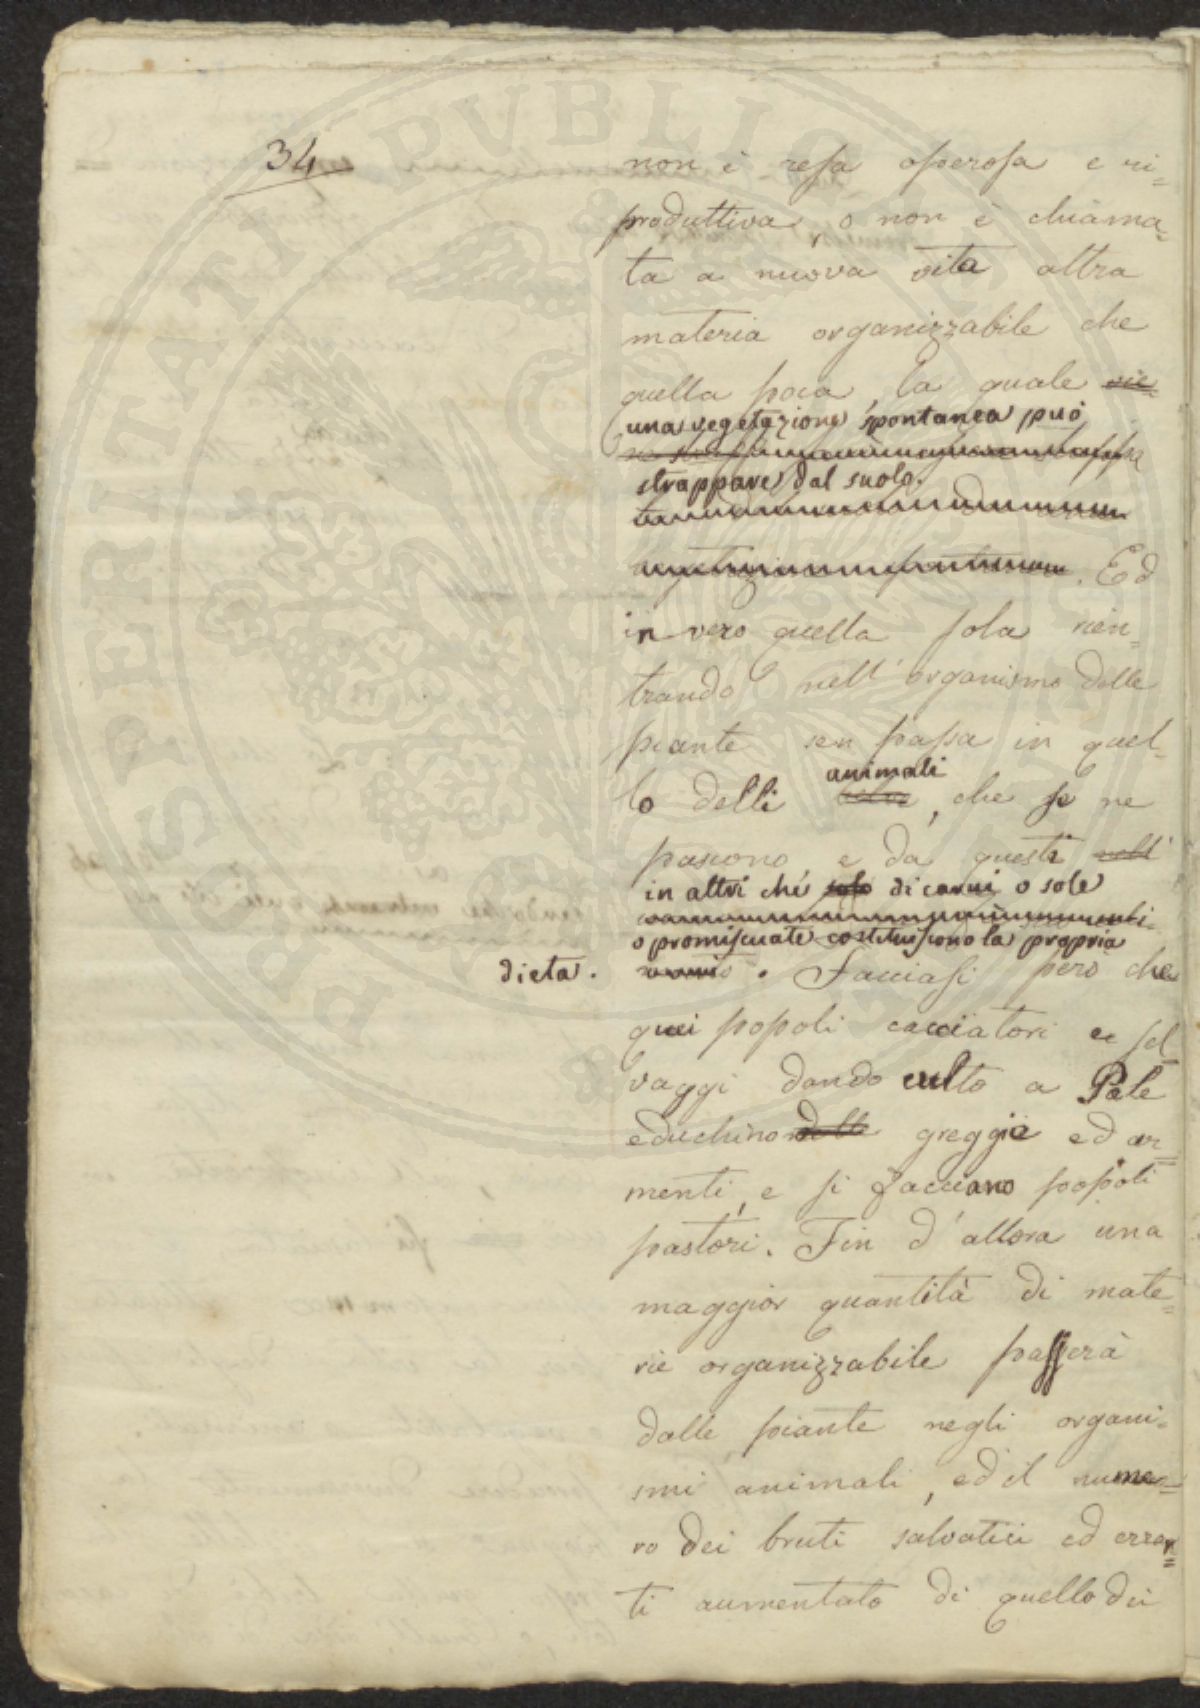 34
non è resa operosa e ri=
produttiva, o non è chiama=
ta a nuova vita altra
materia organizzabile che
quella poca, la quale
una vegetazione spontanea può
strappare dal suolo.
Ed
in vero quella sola rien=
trando nell'organismo delle
piante sen passa in quel=
animali
lo delli , che se ne
pascono, e da questi
in altri ché di carni o sole
o promiscuate costituiscono la propria
dieta. . Facciasi però che
quei popoli cacciatori e sel=
vaggi dando culto a Pale
educhino greggie ed ar=
menti, e si facciano popoli
pastori. Fin d'allora una
maggior quantità di mate=
rie organizzabile passerà
dalle piante negli organi=
smi animali, ed il nume=
ro dei bruti salvatici ed erran=
ti aumentato di quello dei
PROSPERITATI PVBLICAE